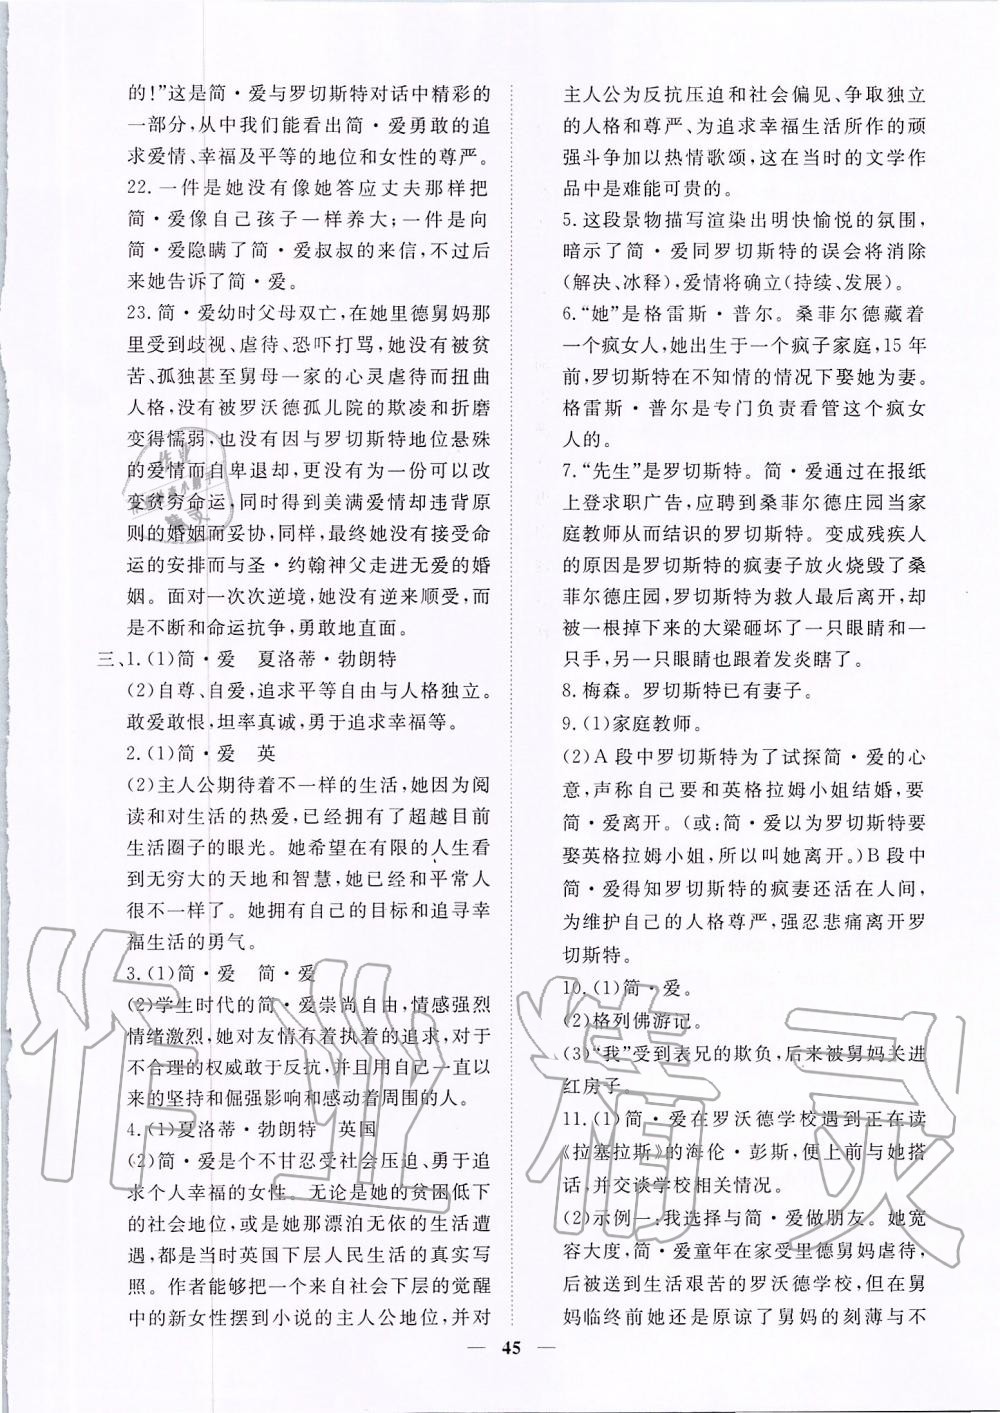 的!”这是简·爱与罗切斯特对话中精彩的
一部分,从中我们能看出简·爱勇敢的追
求爱情、幸福及平等的地位和女性的尊严。
22. 一件是她没有像她答应丈夫那样把
简·爱像自己孩子一样养大;一件是向
简·爱隐瞒了简·爱叔叔的来信,不过后
来她告诉了简·爱。
23. 简·爱幼时父母双亡,在她里德舅妈那
里受到歧视、虐待、恐吓打骂,她没有被贫
苦、孤独甚至舅母一家的心灵虐待而扭曲
人格,没有被罗沃德孤儿院的欺凌和折磨
变得懦弱,也没有因与罗切斯特地位悬殊
的爱情而自卑退却,更没有为一份可以改
变贫穷命运,同时得到美满爱情却违背原
则的婚姻而妥协,同样,最终她没有接受命
运的安排而与圣·约翰神父走进无爱的婚
姻。面对一次次逆境,她没有逆来顺受,而
是不断和命运抗争,勇敢地直面。
三、1. (1)简·爱 夏洛蒂·勃朗特
(2)自尊、自爱,追求平等自由与人格独立。
敢爱敢恨,坦率真诚,勇于追求幸福等。
2. (1)简·爱 英
(2)主人公期待着不一样的生活,她因为阅
读和对生活的热爱,已经拥有了超越目前
生活圈子的眼光。她希望在有限的人生看
到无穷大的天地和智慧,她已经和平常人
很不一样了。她拥有自己的目标和追寻幸
福生活的勇气。
3. (1)简·爱 简·爱
(2)学生时代的简·爱崇尚自由,情感强烈
情绪激烈,她对友情有着执着的追求,对于
不合理的权威敢于反抗,并且用自己一往无
来的坚持和倔强影响和感动着周围的人。
4. (1)夏洛蒂·勃朗特 英国
(2)简·爱是个不甘忍受社会压迫、勇于追
求个人幸福的女性。无论是她的贫困低下
的社会地位,或是她那漂泊无依的生活遭
遇,都是当时英国下层人民生活的真实写
照。作者能够把一个来自社会下层的觉醒
中的新女性摆到小说的主人公地位,并对
主人公为反抗压迫和社会偏见、争取独立
的人格和尊严、为追求幸福生活所作的顽
强斗争加以热情歌颂,这在当时的文学作
品中是难能可贵的。
5. 这段景物描写渲染出明快愉悦的氛围,
暗示了简·爱同罗切斯特的误会将消除
(解决、冰释),爱情将确立(持续、发展)。
6. “她”是格雷斯·普尔。桑菲尔德藏着
一个疯女人,她出生于一个疯子家庭,15 年
前,罗切斯特在不知情的情况下娶她为妻。
格雷斯·普尔是专门负责看管这个疯女
人的。
7. “先生”是罗切斯特。简·爱通过在报纸
上登求职广告,应聘到桑菲尔德庄园当家
庭教师从而结识的罗切斯特。变成残疾人
的原因是罗切斯特的疯妻子放火烧毁了桑
菲尔德庄园,罗切斯特为救人最后离开,却
被一根掉下来的大梁砸坏了一只眼睛和一
只手,另一只眼睛也跟着发炎瞎了。
8. 梅森。罗切斯特已有妻子。
9. (1)家庭教师。
(2)A 段中罗切斯特为了试探简·爱的心
意,声称自己要和英格拉姆小姐结婚,要
简·爱离开。(或:简·爱以为罗切斯特要
娶英格拉姆小姐,所以叫她离开。)B 段中
简·爱得知罗切斯特的疯妻还活在人间,
为维护自己的人格尊严,强忍悲痛离开罗
切斯特。
10. (1)简·爱。
(2)格列佛游记。
(3)“我”受到表兄的欺负,后来被舅妈关进
红房子。
11. (1)简·爱在罗沃德学校遇到正在读
《拉塞拉斯》的海伦·彭斯,便上前与她搭
话,并交谈学校相关情况。
(2)示例一:我选择与简·爱做朋友。她宽
容大度,简·爱童年在家受里德舅妈虐待,
后被送到生活艰苦的罗沃德学校,但在舅
妈临终前她还是原谅了舅妈的刻薄与不
— 45 —
作业精灵